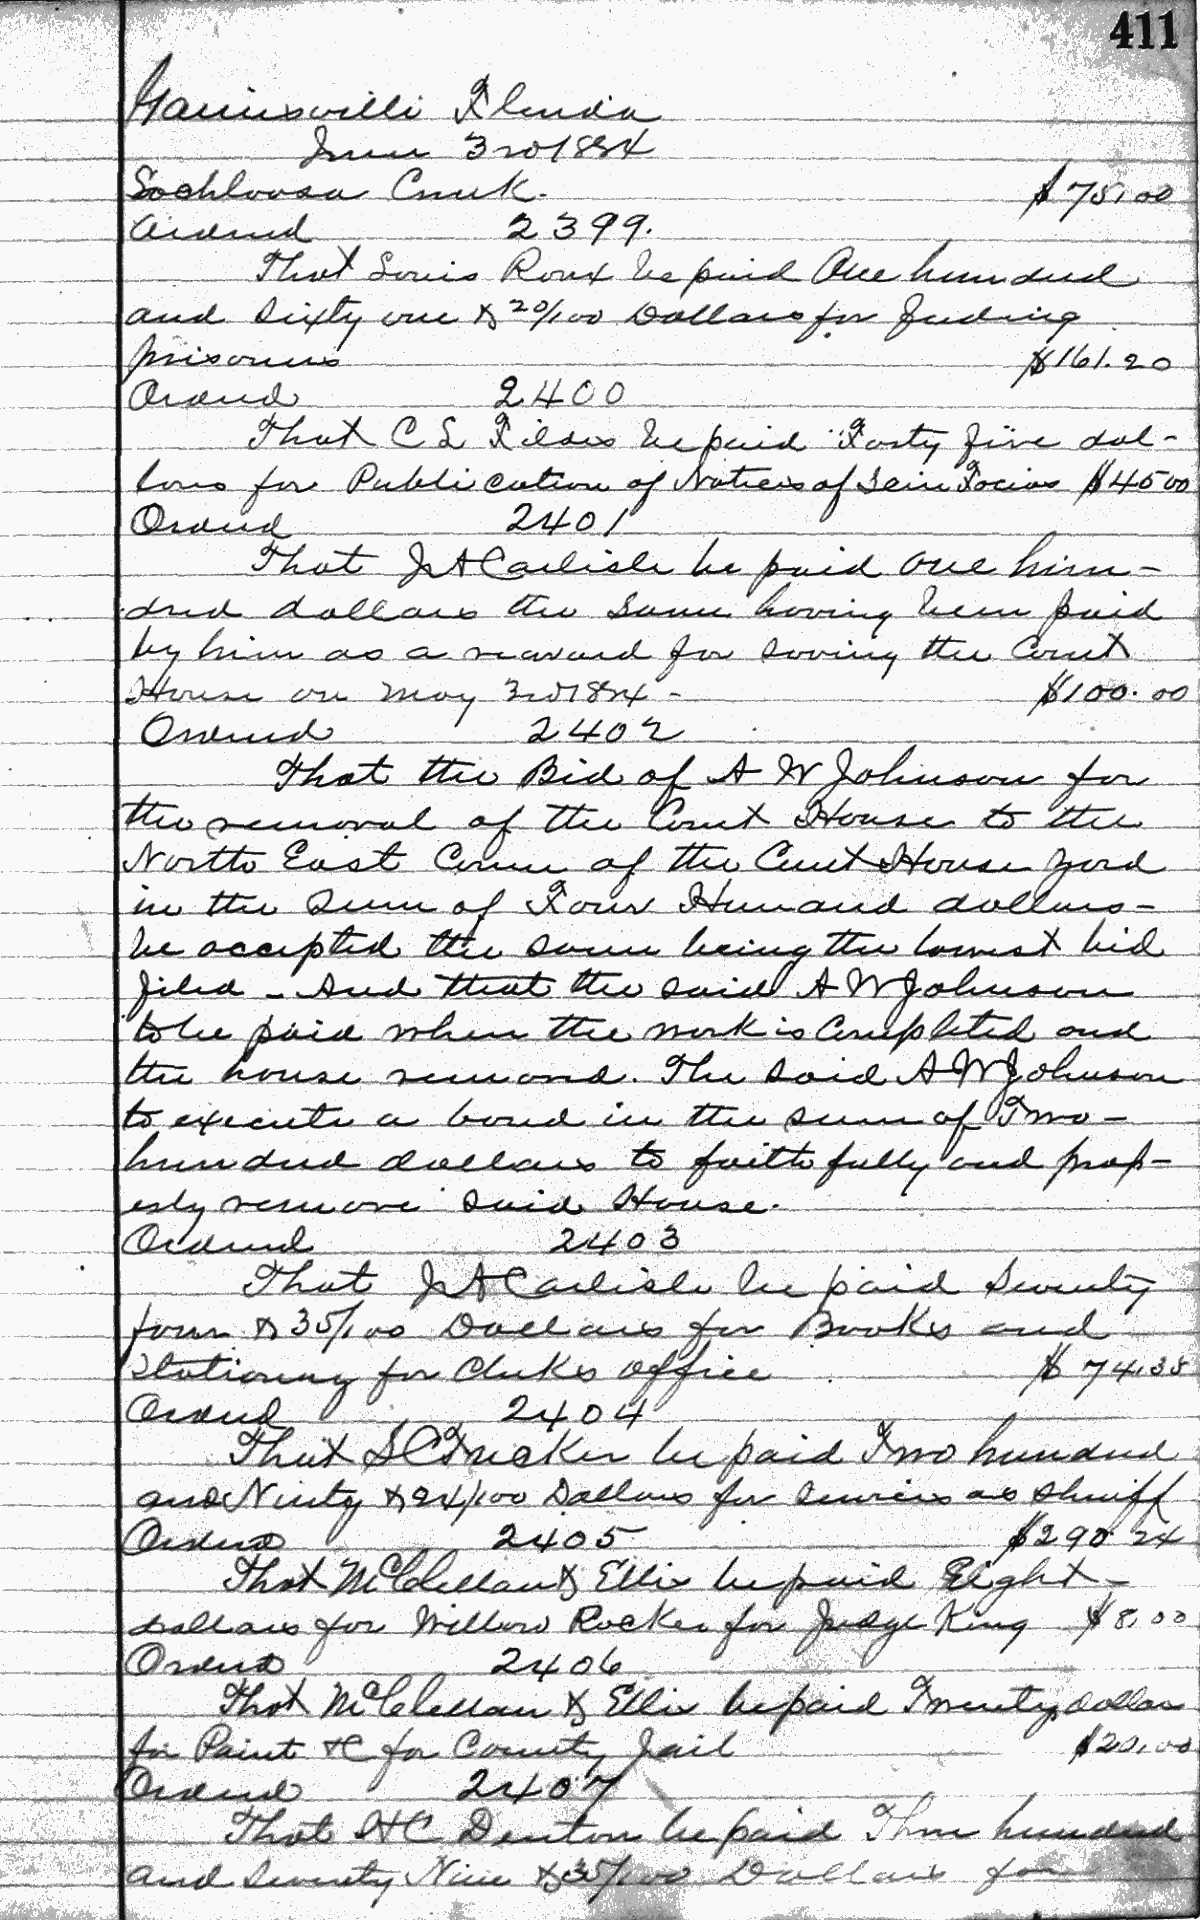 411
Gainesville Florida
June 3rd 1884
Lochloosa Creek. $75.00
Ordered 2399.
That Louis Roux be paid One hundred
and Sixty one & 20/100 Dollars for feeding
prisoners $161.20
Ordered 2400
That C L Fildes be paid Forty five dol-
lars for Publication of Notices of Scin Facias $45 00
Ordered 2401
That J A Carlisle be paid One hun-
dred dollars the Same having been paid
by him as a reward for saving the Court
House on May 3rd 1884 - $100.00
Ordered 2402
That the Bid of A W Johnson for
the removal of the Court House to the
North East Corner of the Court House Yard
in the Sum of Four Hundred dollars-
be accepted the same being the lowest bid
filed - And that the said A W Johnson
to be paid when the work is Completed and
the house removed. The said A W Johnson
to execute a bond in the sum of Two-
hundred dollars to faithfully and prop-
erly remove said House.
Ordered 2403
That J A Carlisle be paid Seventy
four & 35/100 Dollars for Books and
Stationary for Clerks office $74.35
Ordered 2404
That S C Tucker be paid Two hundred
and Ninty & 24/100 Dollars for services as Sheriff
Ordered 2405 $290.24
That McClellan & Ellis be paid Eight-
dollars for Willow Rocker for Judge King $8.00
Ordered 2406
That McClellan & Ellis be paid Twenty dollars
for Paint &C for County Jail $20.00
Ordered 2407
That H C Denton be paid Three hundred
and Seventy Nine & 35/100 Dollars for